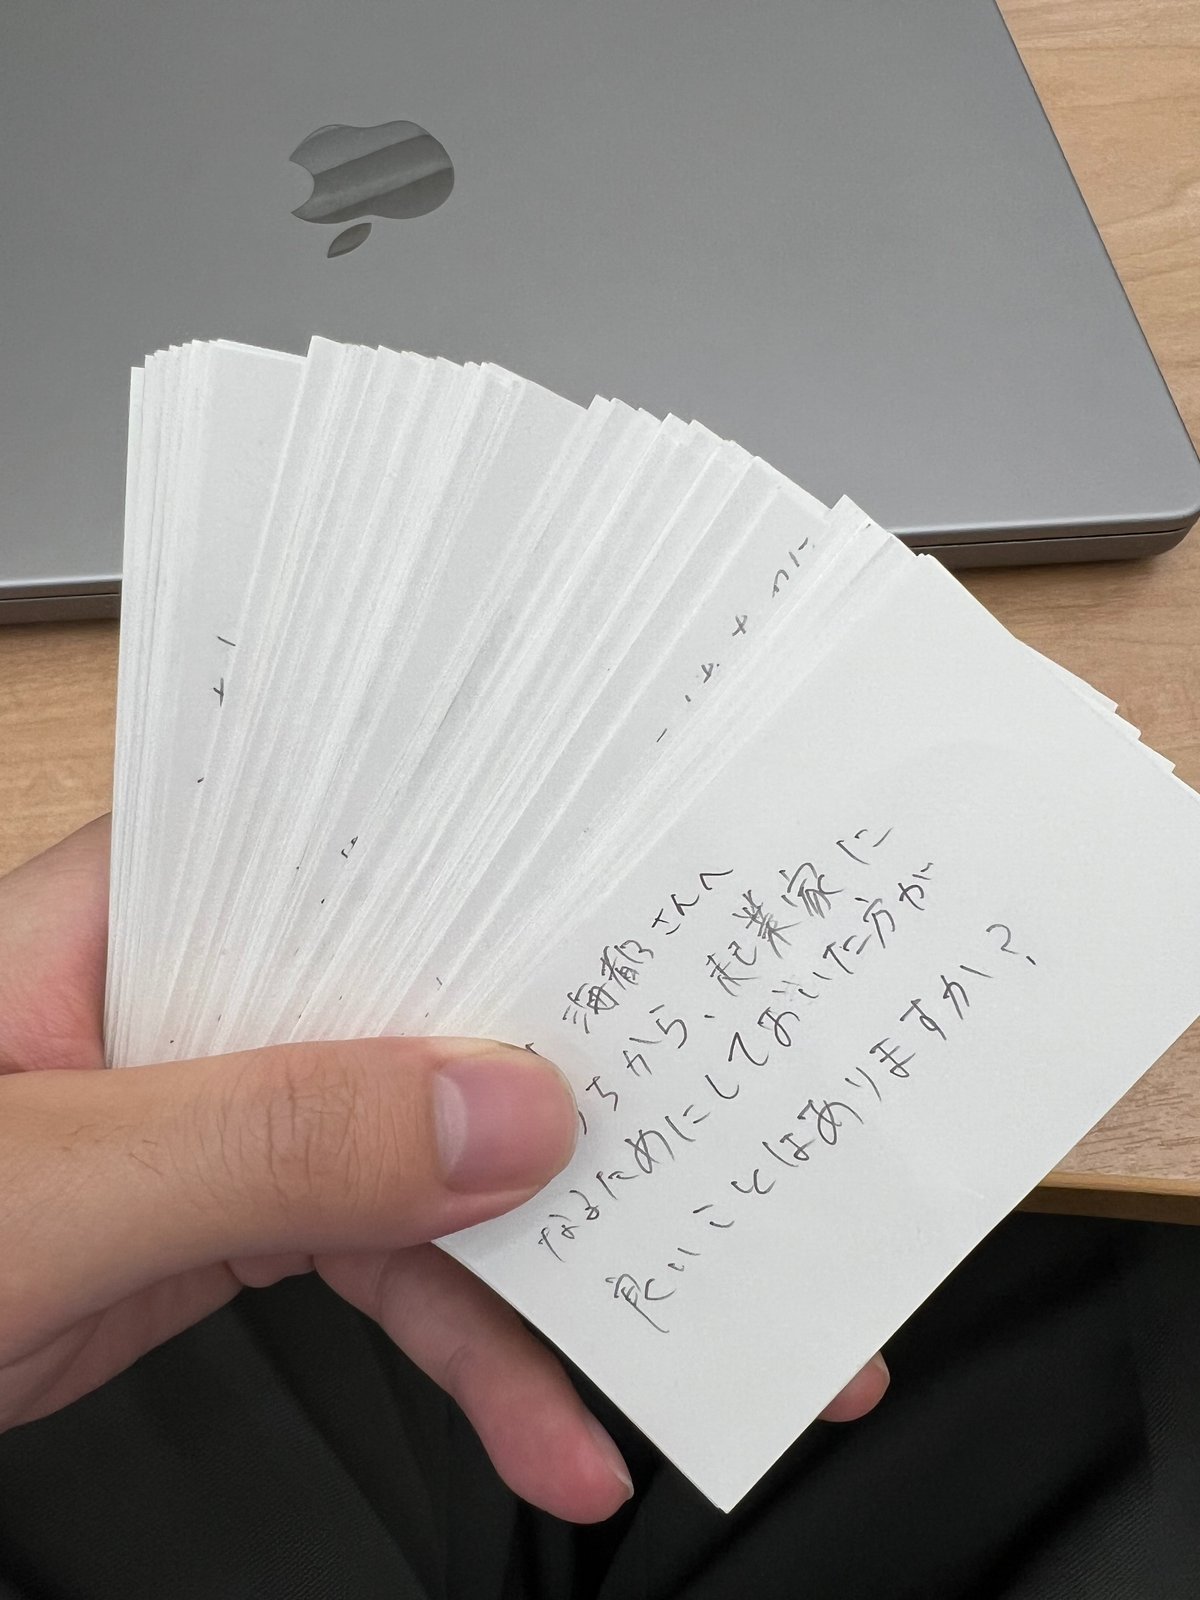 海都さんへ
うちから、起業家に
なるためにしておいた方が
良いことはありますか?